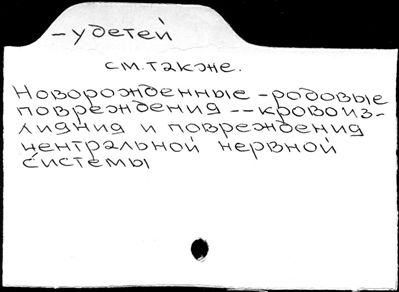 - у детей
см. также.
Новорожденные - родовые
повреждения -- кровоиз-
лияния и повреждения
центральной нервной
системы